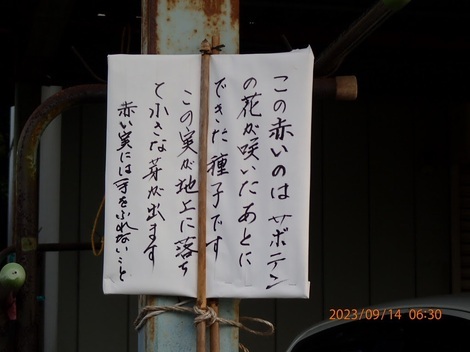 この赤いのはサボテン
の花が咲いたあとに
できた種子です
この実が地上に落ち
て小さな芽が出ます
赤い実には手をふれないこと
2023/09/14 06:30